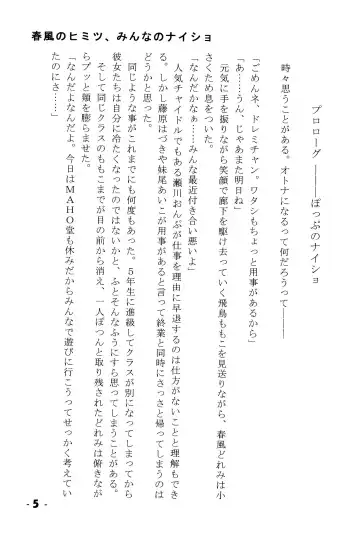 春風のヒミツ、みんなのナイショ
プロローグ　　ぽっぷのナイショ
時々思うことがある。オトナになるって何だろうって――――
「ごめんネ、ドレミチャン。ワタシもちょっと用事があるから」
「あ……うん、じゃあまた明日ね」
元気に手を振りながら笑顔で廊下を駆け去っていく飛鳥ももこを見送りながら、春風どれみは小
さくため息をついた。
「なんだかなぁ……みんな最近付き合い悪いよ」
人気チャイドルでもある瀬川おんぷが仕事を理由に早退するのは仕方がないことと理解もでき
る。しかし藤原はづきや妹尾あいこが用事があると言って終業と同時にさっさと帰ってしまうのは
どうかと思った。
同じような事がこれまでにも何度もあった。５年生に進級してクラスが別になってしまってから
彼女たちは自分に冷たくなったのではないかと、ふとそんなふうにすら思ってしまうことがある。
そして同じクラスのももこまでが目の前から消え、一人ぽつんと取り残されたどれみは俯きなが
らプッと頬を膨らませた。
「なんだよなんだよ。今日はＭＡＨＯ堂も休みだからみんなで遊びに行こうってせっかく考えてい
たのにさ……」
- 5 -